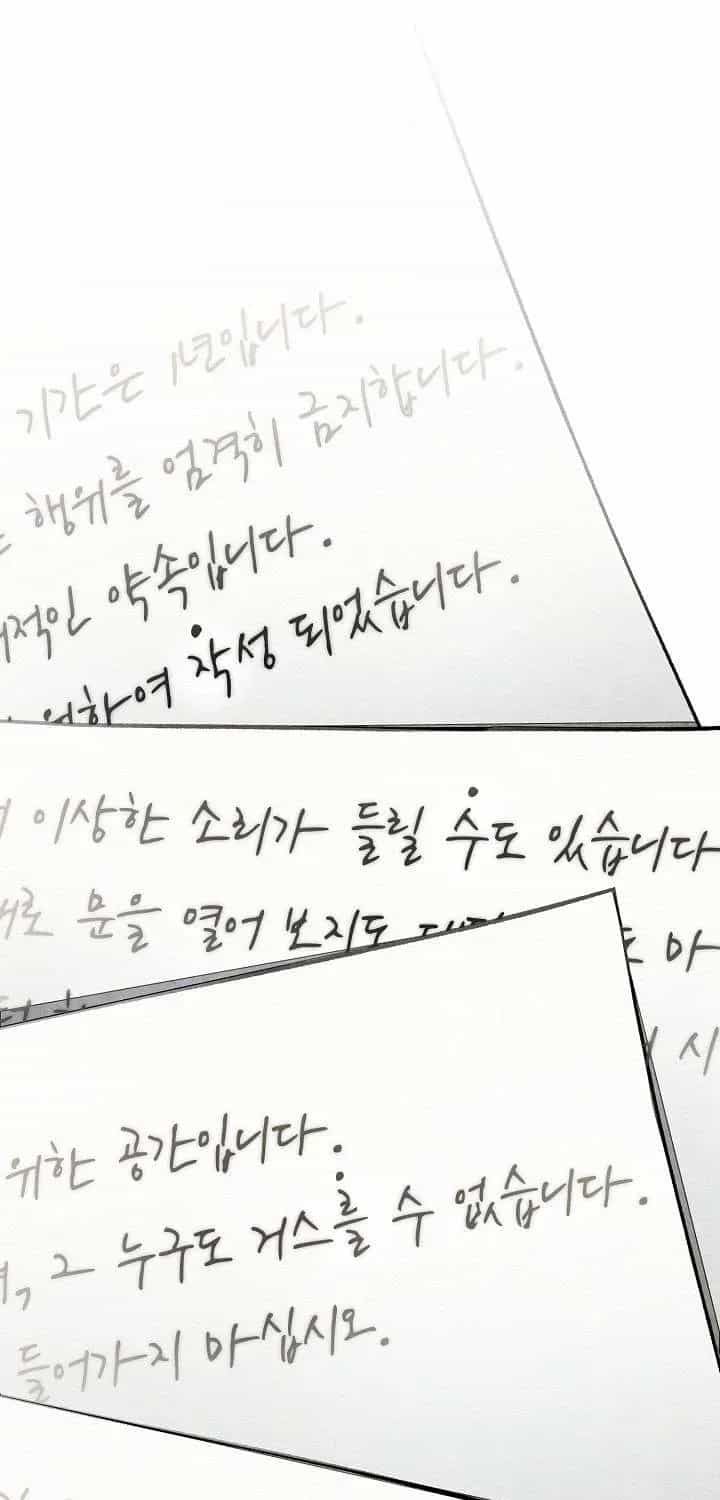 기간은 1년입니다.
행위를 엄격히 금지합니다.
적인 약속입니다.
위하여 작성 되었습니다.
이상한 소리가 들릴 수도 있습니다
대로 문을 열어 보지도 마
시
위한 공간입니다.
그 누구도 거스를 수 없습니다.
들어가지 마십시오.